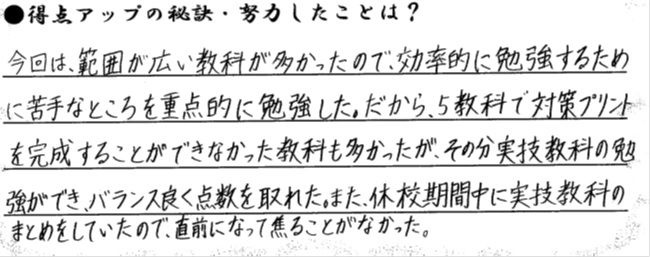 ●得点アップの秘訣・努力したことは？
今回は、範囲が広い教科が多かったので、効率的に勉強するため
に苦手なところを重点的に勉強した。だから、5教科で対策プリント
を完成することができなかった教科も多かったが、その分実技教科の勉
強ができ、バランス良く点数を取れた。また、休校期間中に実技教科の
まとめをしていたので、直前になって焦ることがなかった。